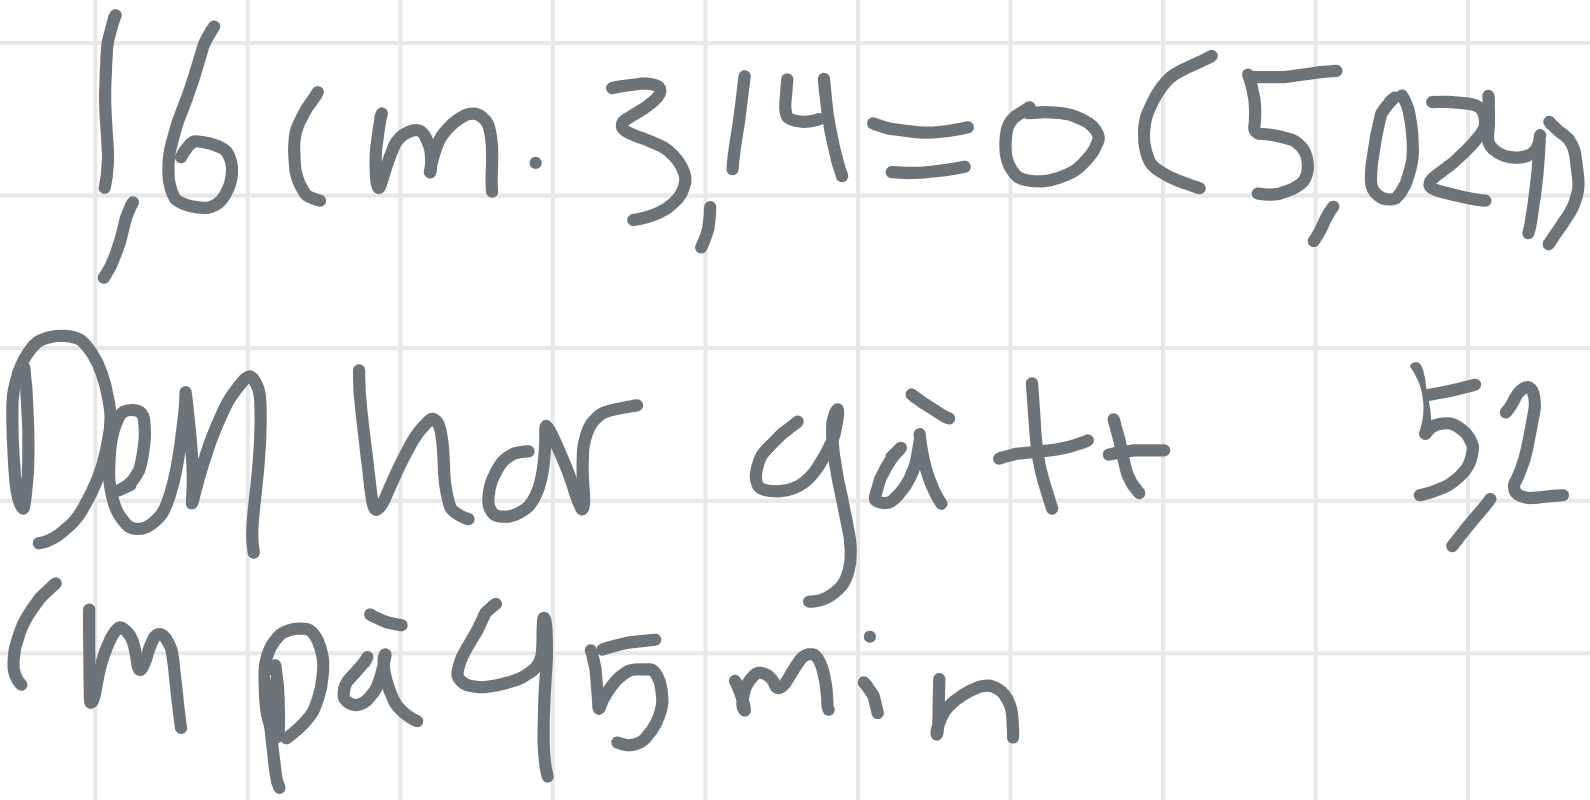 1,6 cm · 3,14 = O (5,024)
Den har gått 5,2
cm på 45 min